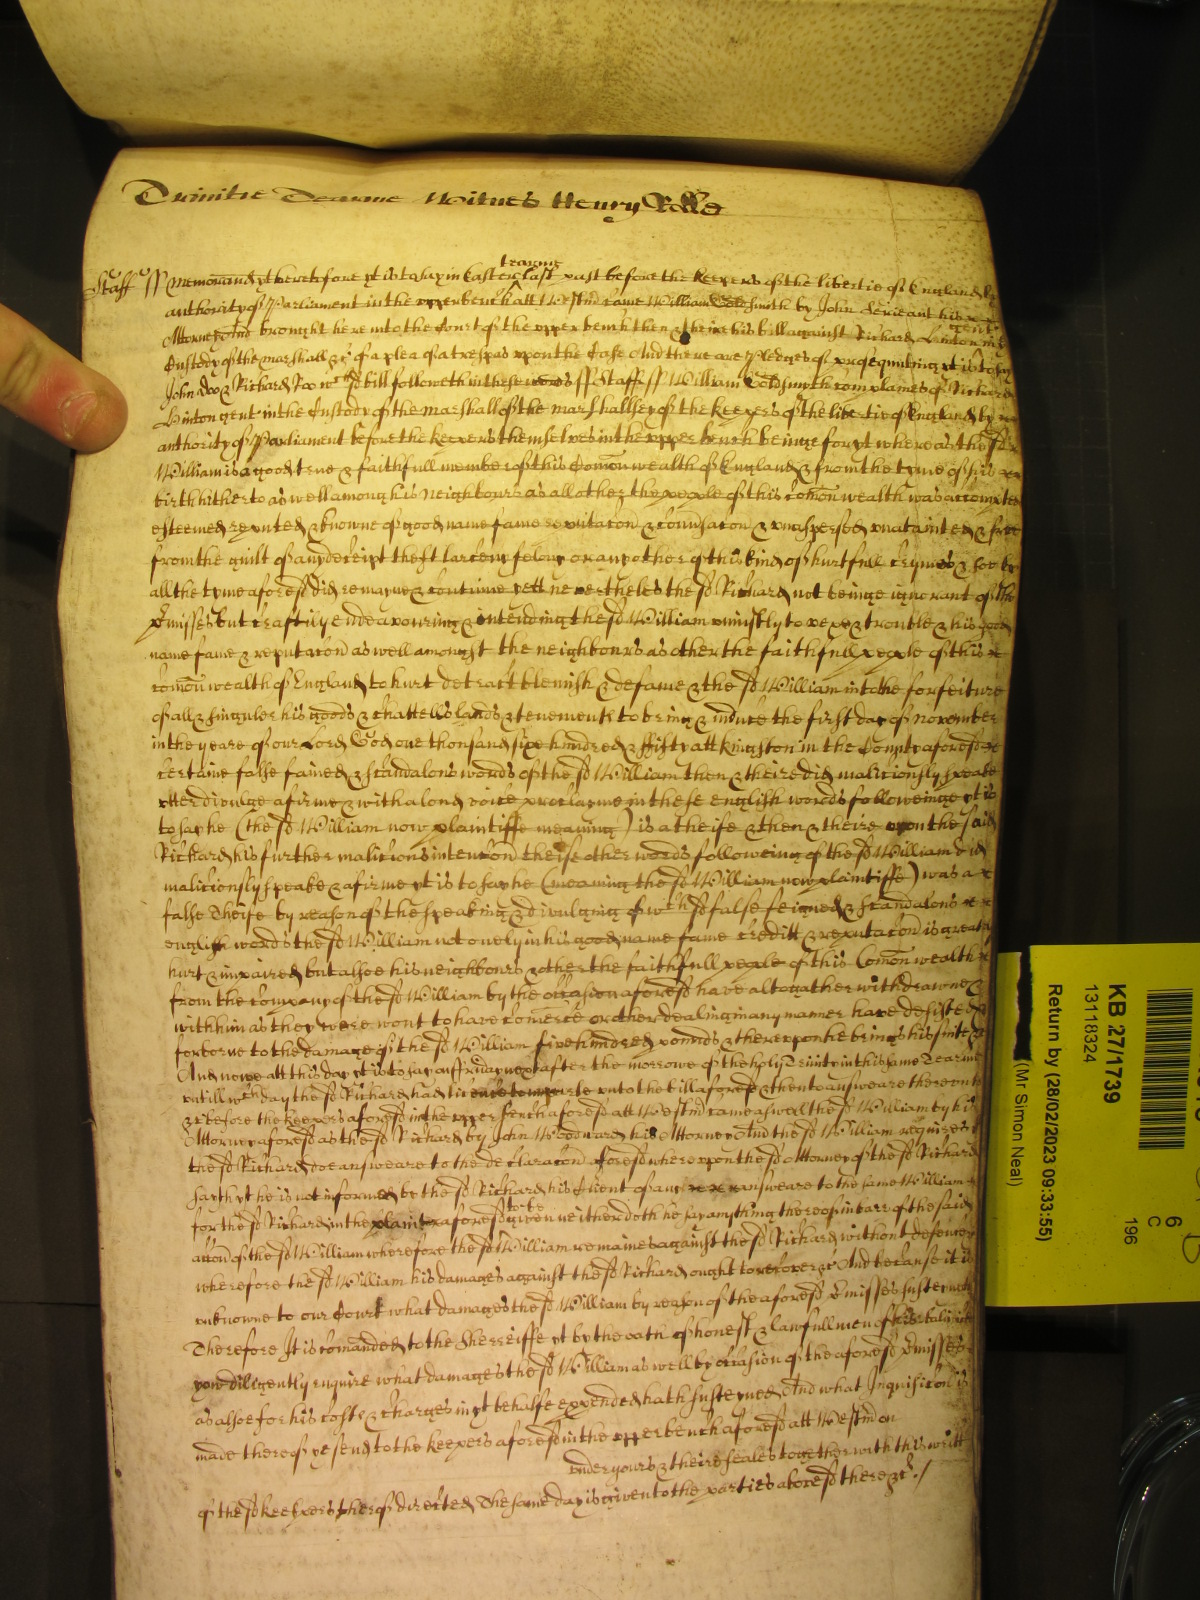 Trinitie Tearme Witnes Henry Rolle
tearme
Staff ss Memorand yt heretofore yt is to say in Easter last past before the keepers of the libertie of England by
authority of Parliament in the upper bench att Westmr came William Goldsmith by John Serieant his
Attorney And brought here into the Court of the upper bench then & theire his bill against Richard Linton gent in ye
Custody of the marshall &c of a plea of a trespas upon the Case And there are Pledges of prosequuting yt is to say
John Doo & Richard Roo wch sd bill followeth in these words ss Staff ss William Goldsmyth complaines of Richard
Linton gent in the Custody of the marshall of the marshallsey of the keepers of the libertie of England by
authority of Parliament before the keepers themselves in the upper bench beinge for yt whereas the sd
William is a good true & faithfull member of this Comon wealth of England & from the tyme of his
birth hitherto as well among his neighbours as all other the people of this comon wealth was accompted
esteemed reputed & knowne of good name fame reputacon & conversacon & unaspersed unatainted & free
from the guilt of any deceipt theft larceny felony or any other of this kind of hurtfull crymes & soe by
all the tyme aforesd did remayne & continue yett neverthelesse the sd Richard not beinge ignorant of the
pmisses but craftily endeavouring & intending the sd William uniustly to vexe & trouble & his good
name fame & reputacon as well amongst the neighbours as other the faithfull people of this
comon wealth of England to hurt detract blemish & defame & the sd William into the forfeiture
of all & singuler his goods & chattells lands & tenements to bring & induce the first day of november
in the yeare of our Lord God one thousand sixe hundred & ffifty att kingston in the County aforesd
certaine false fained & scandalous words of the sd William then & theire did maliciously speake
utter divulge afirme & with a loud voice proclayme in these english words followeinge yt is
to say he (the sd William now plaintiffe meaning) is a theife & then & theire upon the said
Richard his further malicious intencon theise other words followeing of the sd William did
maliciously speake & afirme yt is to say he (meaning the sd William now plaintiffe) was a
false theife by reason of the speaking & divulging of wch sd false feigned & scandalous
english words the sd William not onely in his good name fame creditt & reputacon is greatly
hurt & impaired but alsoe his neighbours & other the faithfull people of this Comon wealth
from the company of the sd William by the occasion aforesd have altogather withdrawne &
with him as they were wont to have comerce or other dealing in any manner have desisted &
forborne to the damage of the sd William five hundred pounds & thereupon he brings his suite &c
And nowe att this day yt is to say on ffriday next after the morrowe of the holy Trinity in this same Tearme
untill wch day the sd Richard had licence to imparle unto the bill aforesd & then to answeare thereunto
&c before the keepers aforesd in the upper bench aforesd att Westmr came aswel the sd William by his
Attorney aforesd as the sd Richard by John Woodward his Attorney And the sd William requires yt
the sd Richard doe answeare to the declaracon aforesd whereupon the sd Attorney of the sd Richard
sayth yt he is not informed by the sd Richard his Client of any answeare to the same William
for the sd Richard in the plaint aforesd to be given neither doth he say any thing thereof in barr of the said
accon of the sd William wherefore the sd William remaines against the sd Richard without defence
wherefore the sd William his damages against the sd Richard ought to recover &c And because it is
unknowne to our Court what damages the sd William by reason of the aforesd pmisses susteyned
Therefore It is comanded to the Sherreiffe yt by the oath of honest & lawfull men of his
you diligently enquire what damages the sd William as well by occasion of the aforesd pmisses
as alsoe for his costs & charges in yt behalfe expended hath susteyned And what Inquisicon is
made thereof ye send to the keepers aforesd in the upper bench aforesd att Westmr on
under yours & theire seales together with this writt
of the sd keepers therof directed The same day is given to the parties aforesd there &c
KB 27/1739
13118324
Return by (28/02/2023 09:33:55)
(Mr Simon Neal)
6
C
196